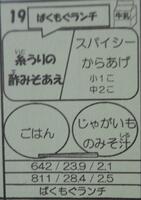 19 ぱくもぐランチ
牛乳
糸うりの
酢みそあえ
スパイシー
からあげ
小1こ
中2こ
ごはん
じゃがいも
のみそ汁
642 / 23.9 / 2.1
811 / 28.4 / 2.5
ぱくもぐランチ